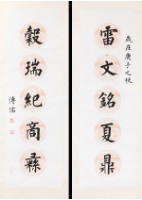 歲在庚子之秋
雷文銘夏鼎
瑞紀商彝
傅濡